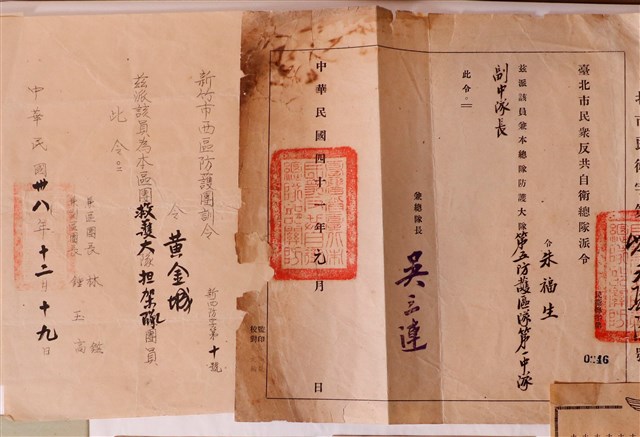 臺北市民眾反共自衛總隊派令
令 朱福生
茲派該員兼本總隊防護大隊第五防護區隊第一中隊
副中隊長
此令
兼總隊長 吳三連
中華民國四十一年元月 日
監印
校對
0246
新竹市西區防護團訓令
新西防字第十號
令 黃金城
茲派該員為本區團救護大隊担架隊團員
此令
兼區團長 林
鍾玉高
中華民國卅八年十二月十九日